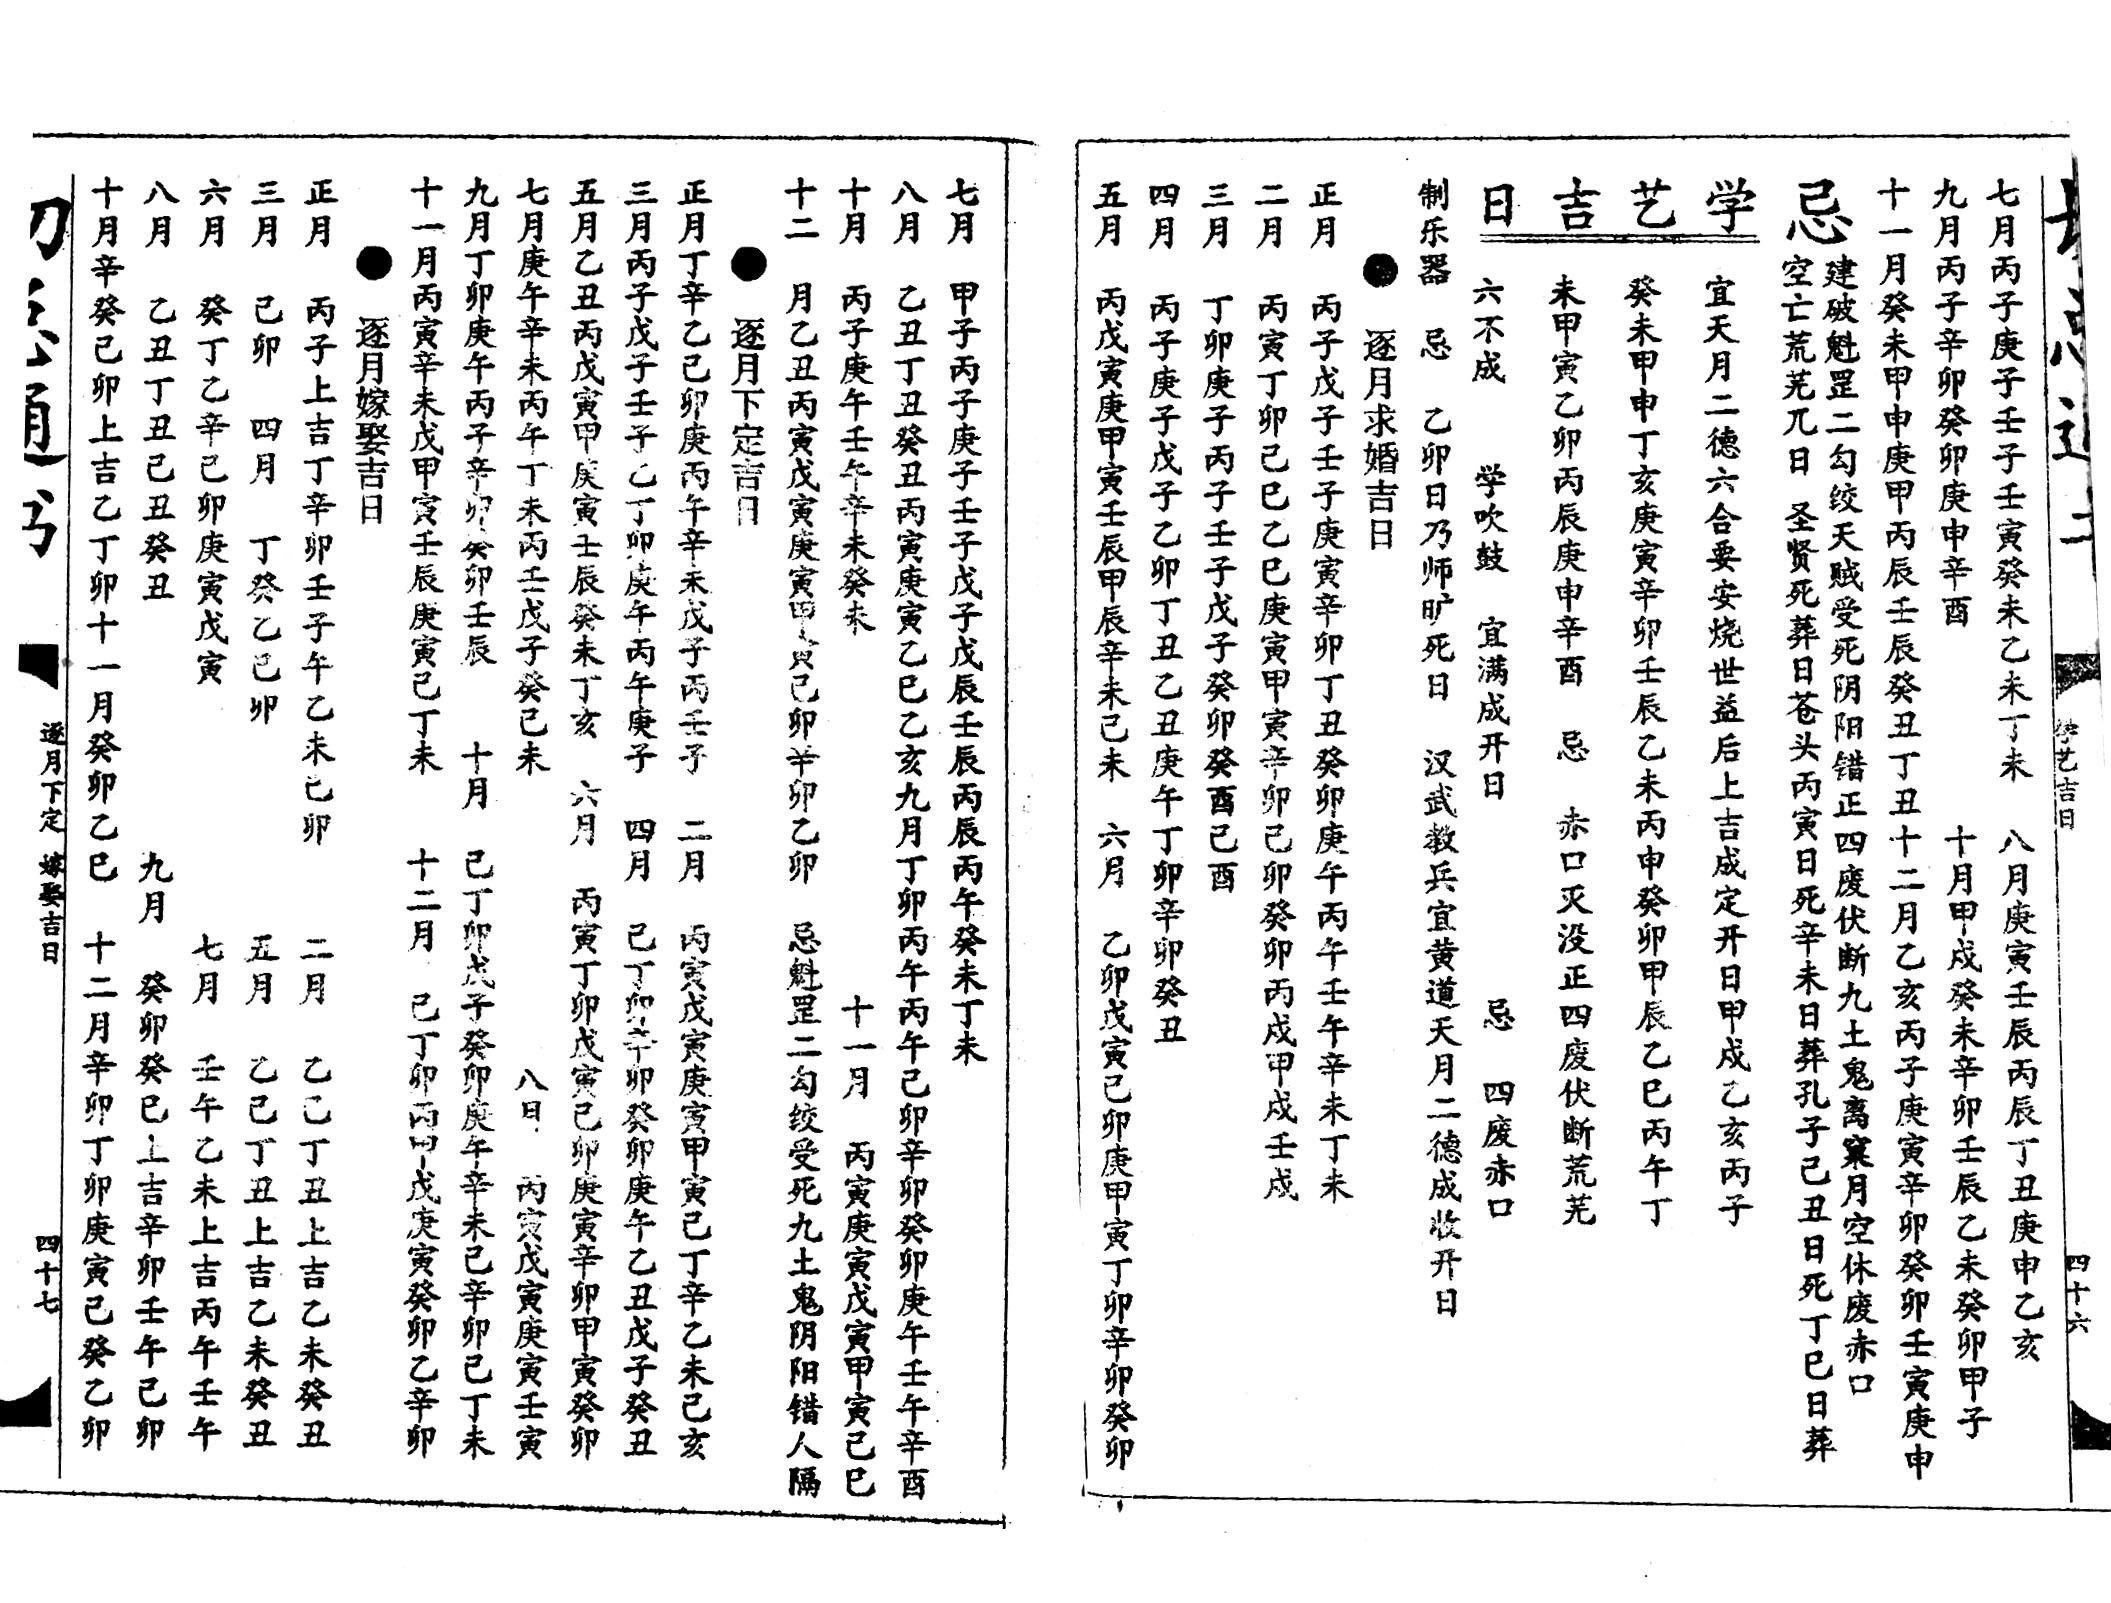 学艺吉日
四十六
七月丙子庚子壬子壬寅癸未乙未丁未 八月庚寅壬辰丙辰丁丑庚申乙亥
九月丙子辛卯癸卯庚申辛酉 十月甲戍癸未辛卯壬辰乙未癸卯甲子
十一月癸未甲申庚甲丙辰壬辰癸丑丁丑十二月乙亥丙子庚寅辛卯癸卯壬寅庚申
忌
建破魁罡二勾绞天贼受死阴阳错正四废伏断九土鬼离窠月空休废赤口
空亡荒芜兀日 圣贤死葬日苍头丙寅日死辛未日葬孔子己丑日死丁巳日葬
学艺吉日
宜天月二德六合要安烧世益后上吉成定开日甲戍乙亥丙子
癸未甲申丁亥庚寅辛卯壬辰乙未丙申癸卯甲辰乙巳丙午丁
未甲寅乙卯丙辰庚申辛酉 忌 赤口灭没正四废伏断荒芜
六不成 学吹鼓 宜满成开日 忌 四废赤口
制乐器 忌 乙卯日乃师旷死日 汉武教兵宜黄道天月二德成收开日
● 逐月求婚吉日
正月 丙子戊子壬子庚寅辛卯丁丑癸卯庚午丙午壬午辛未丁未
二月 丙寅丁卯己巳乙巳庚寅甲寅辛卯己卯癸卯丙戍甲戍壬戍
三月 丁卯庚子丙子壬子戊子癸卯癸酉己酉
四月 丙子庚子戊子乙卯丁丑乙丑庚午丁卯辛卯癸丑
五月 丙戊寅庚甲寅壬辰甲辰辛未己未 六月 乙卯戊寅己卯庚甲寅丁卯辛卯癸卯
七月 甲子丙子庚子壬子戊子戊辰壬辰丙辰丙午癸未丁未
八月 乙丑丁丑癸丑丙寅庚寅乙巳乙亥九月丁卯丙午丙午己卯辛卯癸卯庚午壬午辛酉
十月 丙子庚午壬午辛未癸未 十一月 丙寅庚寅戊寅甲寅己巳
十二月乙丑丙寅戊寅庚寅甲寅己卯辛卯乙卯 忌魁罡二勾绞受死九土鬼阴阳错人隔
● 逐月下定吉日
正月丁辛乙己卯庚丙午辛未戊子丙壬子 二月 丙寅戊寅庚寅甲寅己丁辛乙未己亥
三月丙子戊子壬子乙丁卯庚午丙午庚子 四月 己丁卯辛卯癸卯庚午乙丑戊子癸丑
五月乙丑丙戊寅甲庚寅壬辰癸未丁亥 六月 丙寅丁卯戊寅己卯庚寅辛卯甲寅癸卯
七月庚午辛未丙午丁未丙壬戊子癸己未 八日 丙寅戊寅庚寅壬寅
九月丁卯庚午丙子辛卯癸卯壬辰 十月 己丁卯戊子癸卯庚午辛未己辛卯己丁未
十一月丙寅辛未戊甲寅壬辰庚寅己丁未 十二月 己丁卯丙甲戊庚寅癸卯乙辛卯
● 逐月嫁娶吉日
正月 丙子上吉丁辛卯壬子午乙未己卯 二月 乙己丁丑上吉乙未癸丑
三月 己卯 四月 丁癸乙己卯 五月 乙己丁丑上吉乙未癸丑
六月 癸丁乙辛己卯庚寅戊寅 七月 壬午乙未上吉丙午壬午
八月 乙丑丁丑己丑癸丑 九月 癸卯癸巳上吉辛卯壬午己卯
十月辛癸己卯上吉乙丁卯十一月癸卯乙巳 十二月辛卯丁卯庚寅己癸乙卯
逐月下定 嫁娶吉日
四十七